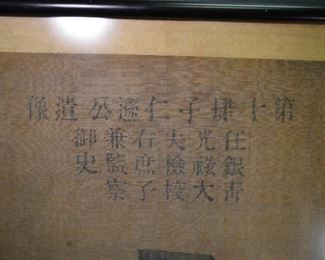 第十肆子仁公遺像
任銀青
光祿大
夫檢校
右庶子
兼監察
御史